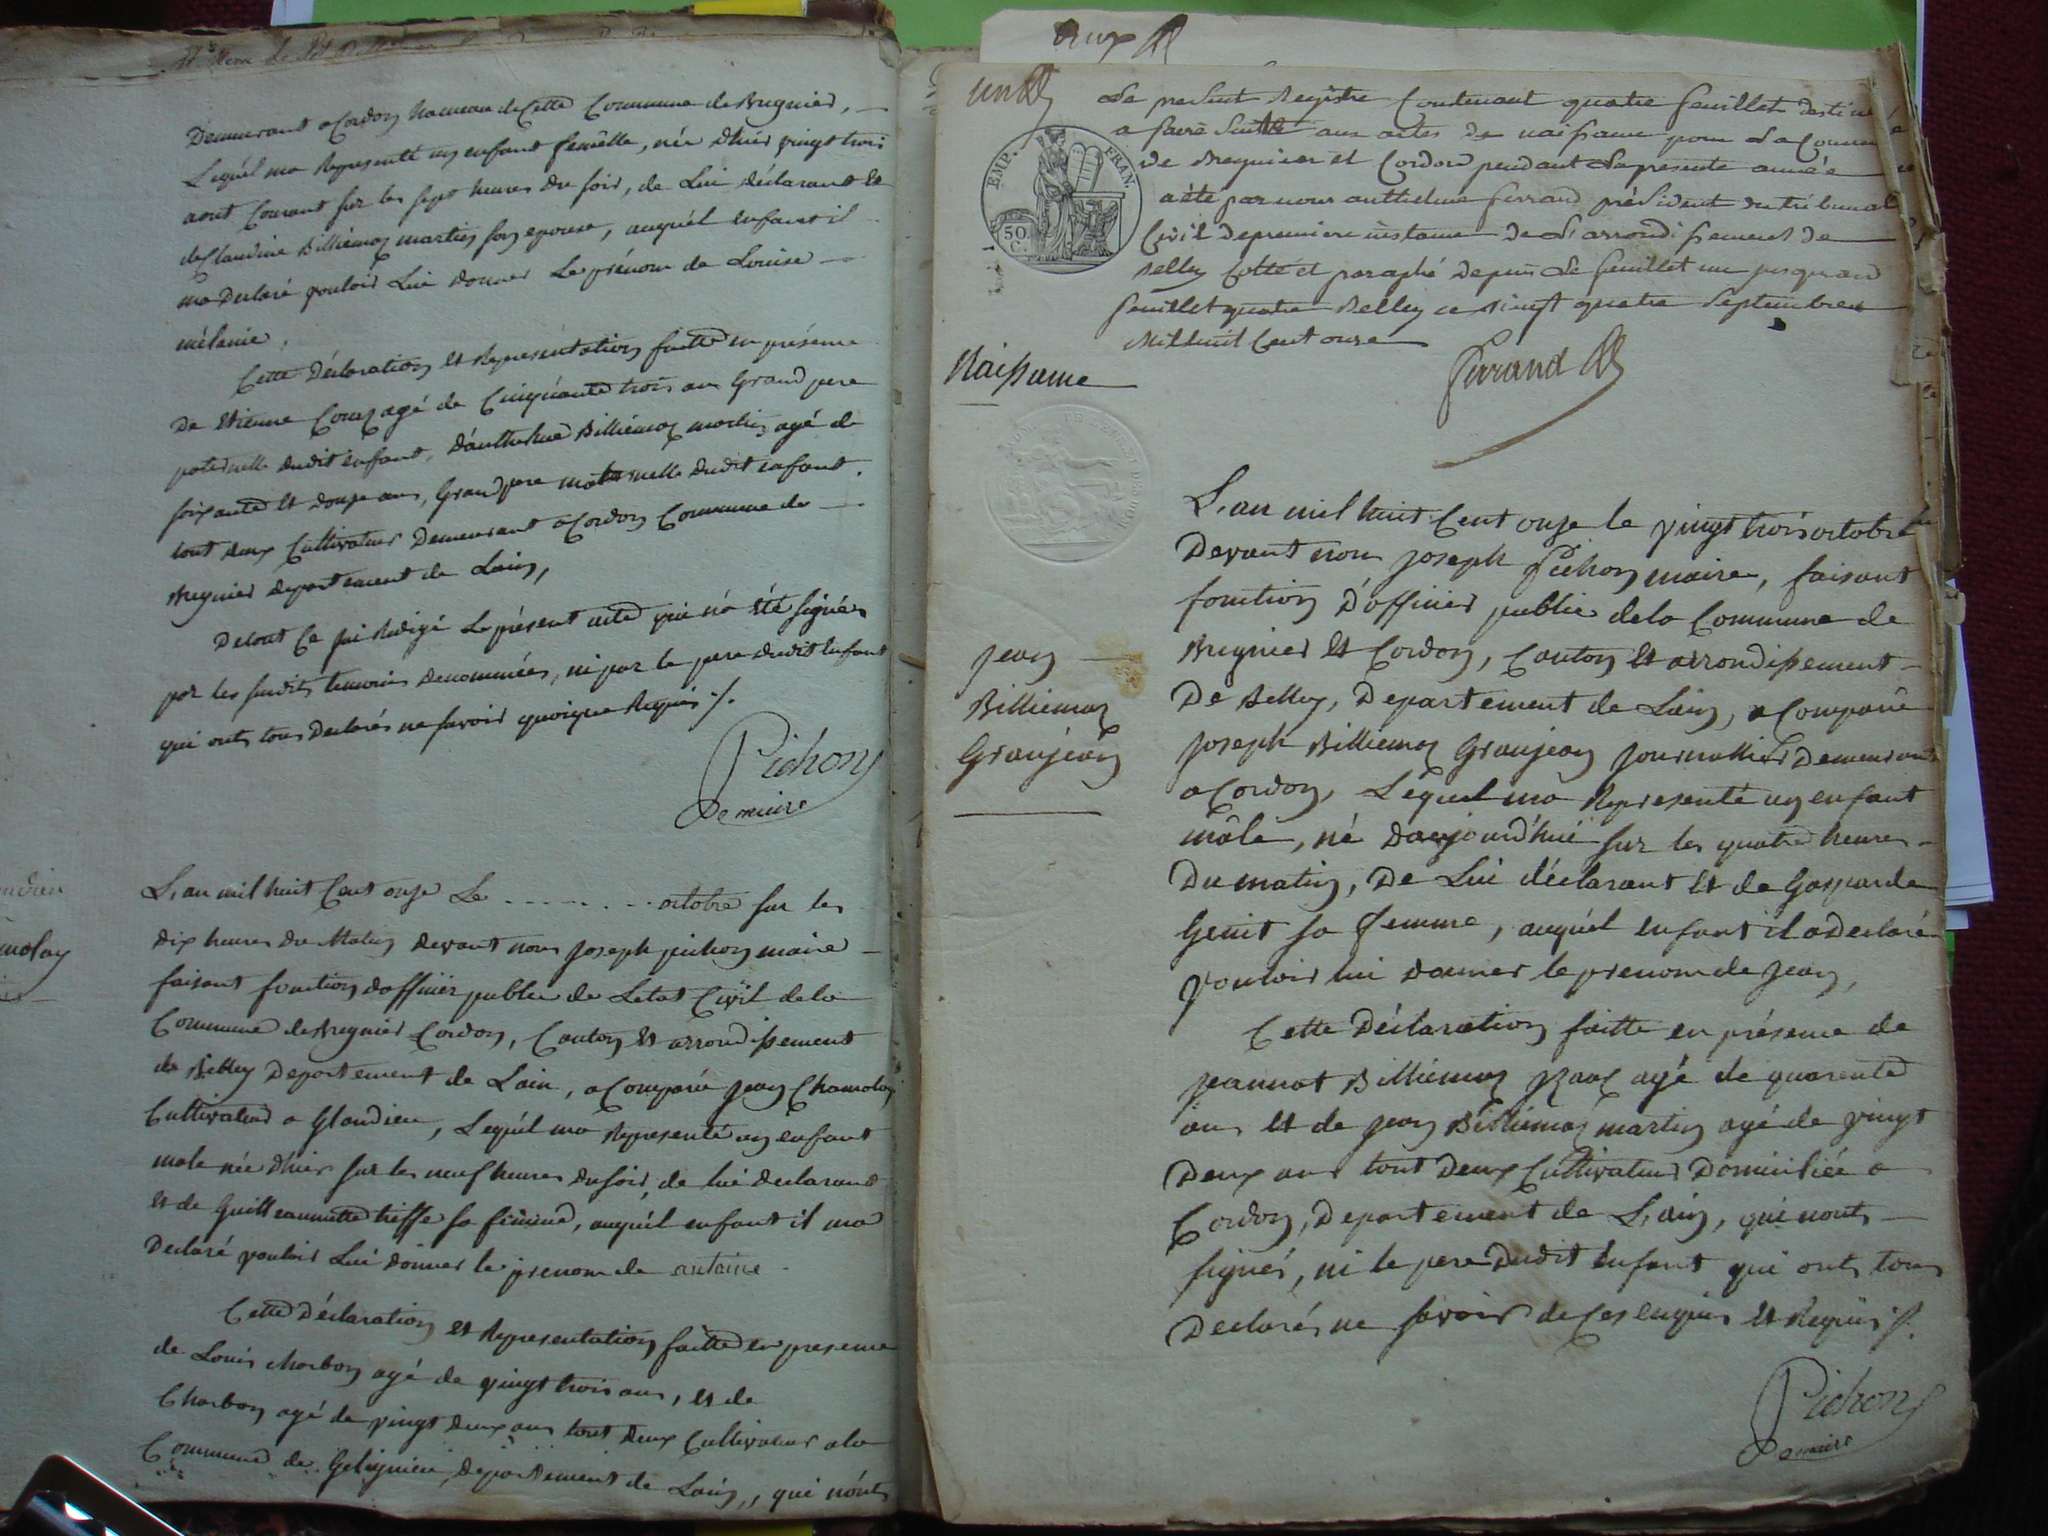 Demeurant a Cordon hameau de Cette Commune de Bregnier,
Lequel ma Representé un enfant femelle, née d'hier vingt trois
aout Courant sur les sept heures du soir, de Lui déclarant et
de Claudine Billiemaz martin son epouse, auquel enfant il
ma Declaré vouloir Lui donner Le prénom de Louise
mélanie.
Cette Déclaration et Representation faitte en présence
De Etienne agé de Cinquante trois ans Grand pere
paternelle dudit enfant, d'anthelme Billiemaz martin agé de
soixante et douze ans, Grand pere maternelle dudit enfant.
tout deux Cultivateurs Demeurant a Cordon Commune de
Bregnier departement de Lain,
Detout Ce jai Redigé Le présent acte qui n'a été signée
par les susdits temoins denommées, ni par le pere dudit enfant
qui onts tous Declarés ne savoir quoique Requis ./.
Pichon
Le maire
ndieu
molay
L,an mil huit Cent onze Le . . . . . . . octobre sur les
dix heures du Matin devant nous Joseph pichon maire
faisant fonction dofficier public de Letat Civil de la
Commune de Bregnier Cordon, Canton et arrondissement
de Belley Departement de Lain, a Comparu Jean Chamolay
Cultivateur a Glandieu, Lequel ma Representé un enfant
male née d'hier sur les neuf heures du soir, de lui declarant
et de Guilleaumette sa femme, auquel enfant il ma
Declaré vouloir Lui donner le prenom de antoine.
Cette Déclaration et Representation faitte en presence
de Louis Charbon agé de vingt trois ans, et de
Charbon agé de vingt deux ans tout deux Cultivateurs a la
Commune de departement de Lain, qui n'onts
un
Le present Registre Contenant quatre feuillet destiné
a faire Suitte aux actes de naissance pour La Commune
de Bregnier et Cordon pendant La presente année
a été par nous anthelme ferrand président du tribunal
Civil de premiere instance de L'arrondissement de
Belley Cotté et paraphé Depuis Le feuillet un jusquau
feuillet quatre Belley ce vingt quatre Septembre
Mil huit Cent onze
EMP. FRAN.
50.
C.
ferrand
Naissance
Jean
Billiemaz
Granjean
L,an mil huit Cent onze le vingt trois octobre
Devant nous Joseph Pichon maire, faisant
fonction D'officier public de la Commune de
Bregnier et Cordon, Canton et arrondissement
De Belley, Departement de Lain, a Comparu
Joseph Billiemaz Granjean Journallier Demeurant
a Cordon, Lequel ma Representé un enfant
mâle, né d'aujourd'hui sur les quatre heures
Du matin, De Lui déclarant et de Gasparde
Genit sa femme, auquel enfant il a Declaré
vouloir lui donner le prenom de Jean,
Cette Déclaration faitte en présence de
Jeannot Billiemaz agé de quarente
ans et de Jean Billiemaz martin agé de vingt
Deux ans tout Deux Cultivateurs Domiciliée a
Cordon, Departement de L,ain, qui nonts
signés, ni le pere Dudit enfant qui onts tous
Declarés ne savoir de Ces enquis et Requis ./.
Pichon
Le maire